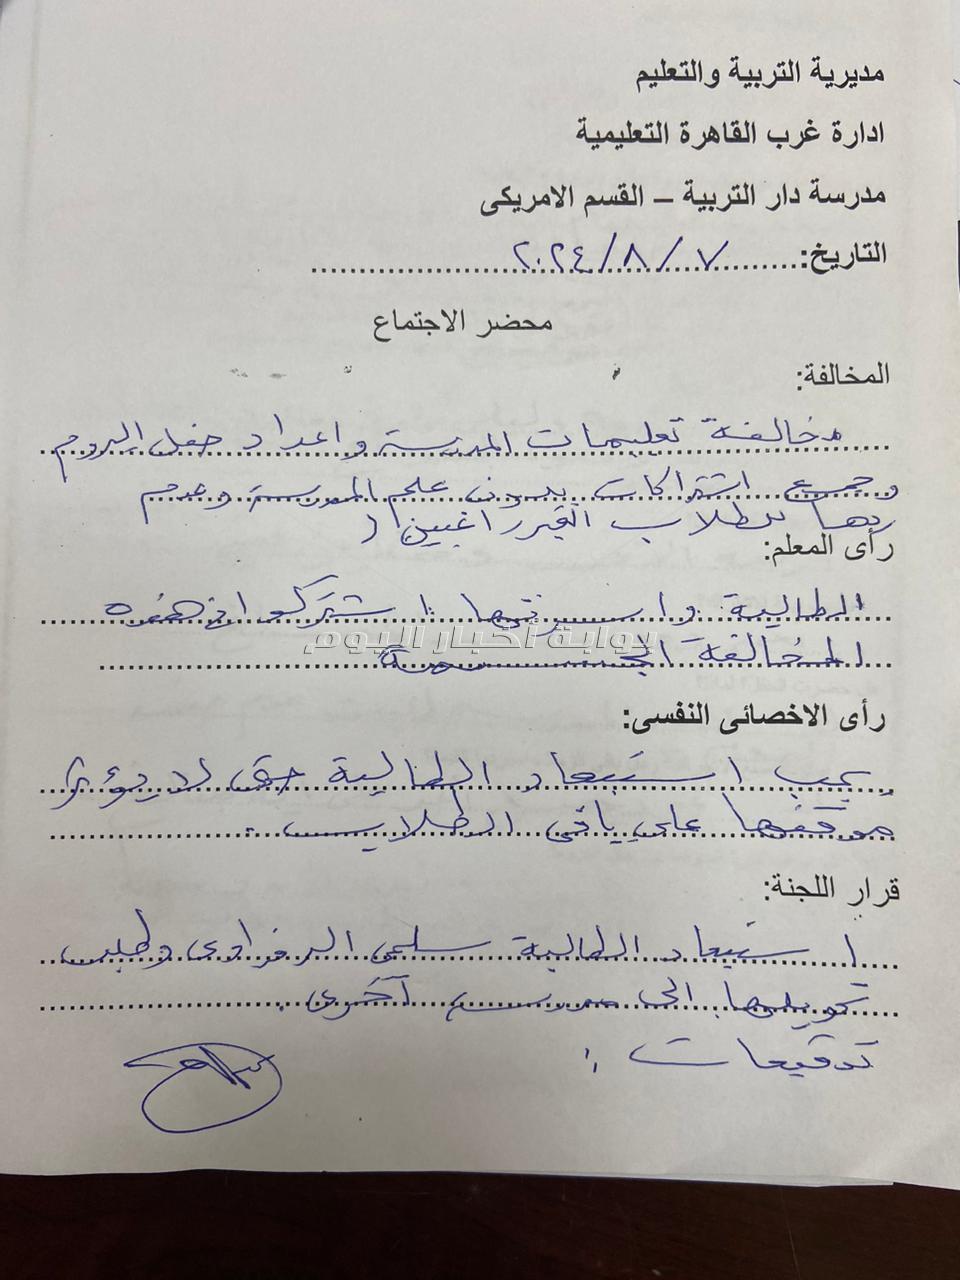 مديرية التربية والتعليم
ادارة غرب القاهرة التعليمية
مدرسة دار التربية – القسم الامريكى
التاريخ: ٢٠٢٤/٨/٧
محضر الاجتماع
المخالفة:
مخالفة تعليمات المدرسة واعداد حفل البروم
وجمع اشتراكات بدون علم المدرسة وعدم
ردها للطلاب الغير راغبين
رأى المعلم:
الطالبة واسرتها اشتركوا فى هذه
بوابة أخبار اليوم
المخالفة الجسيمة
رأى الاخصائى النفسى:
يجب استبعاد الطالبة حتى لا يؤثر
موقفها على باقى الطلاب.
قرار اللجنة:
استبعاد الطالبة سلمى وطلب
تحويلها الى مدرسة أخرى.
توقيعات: